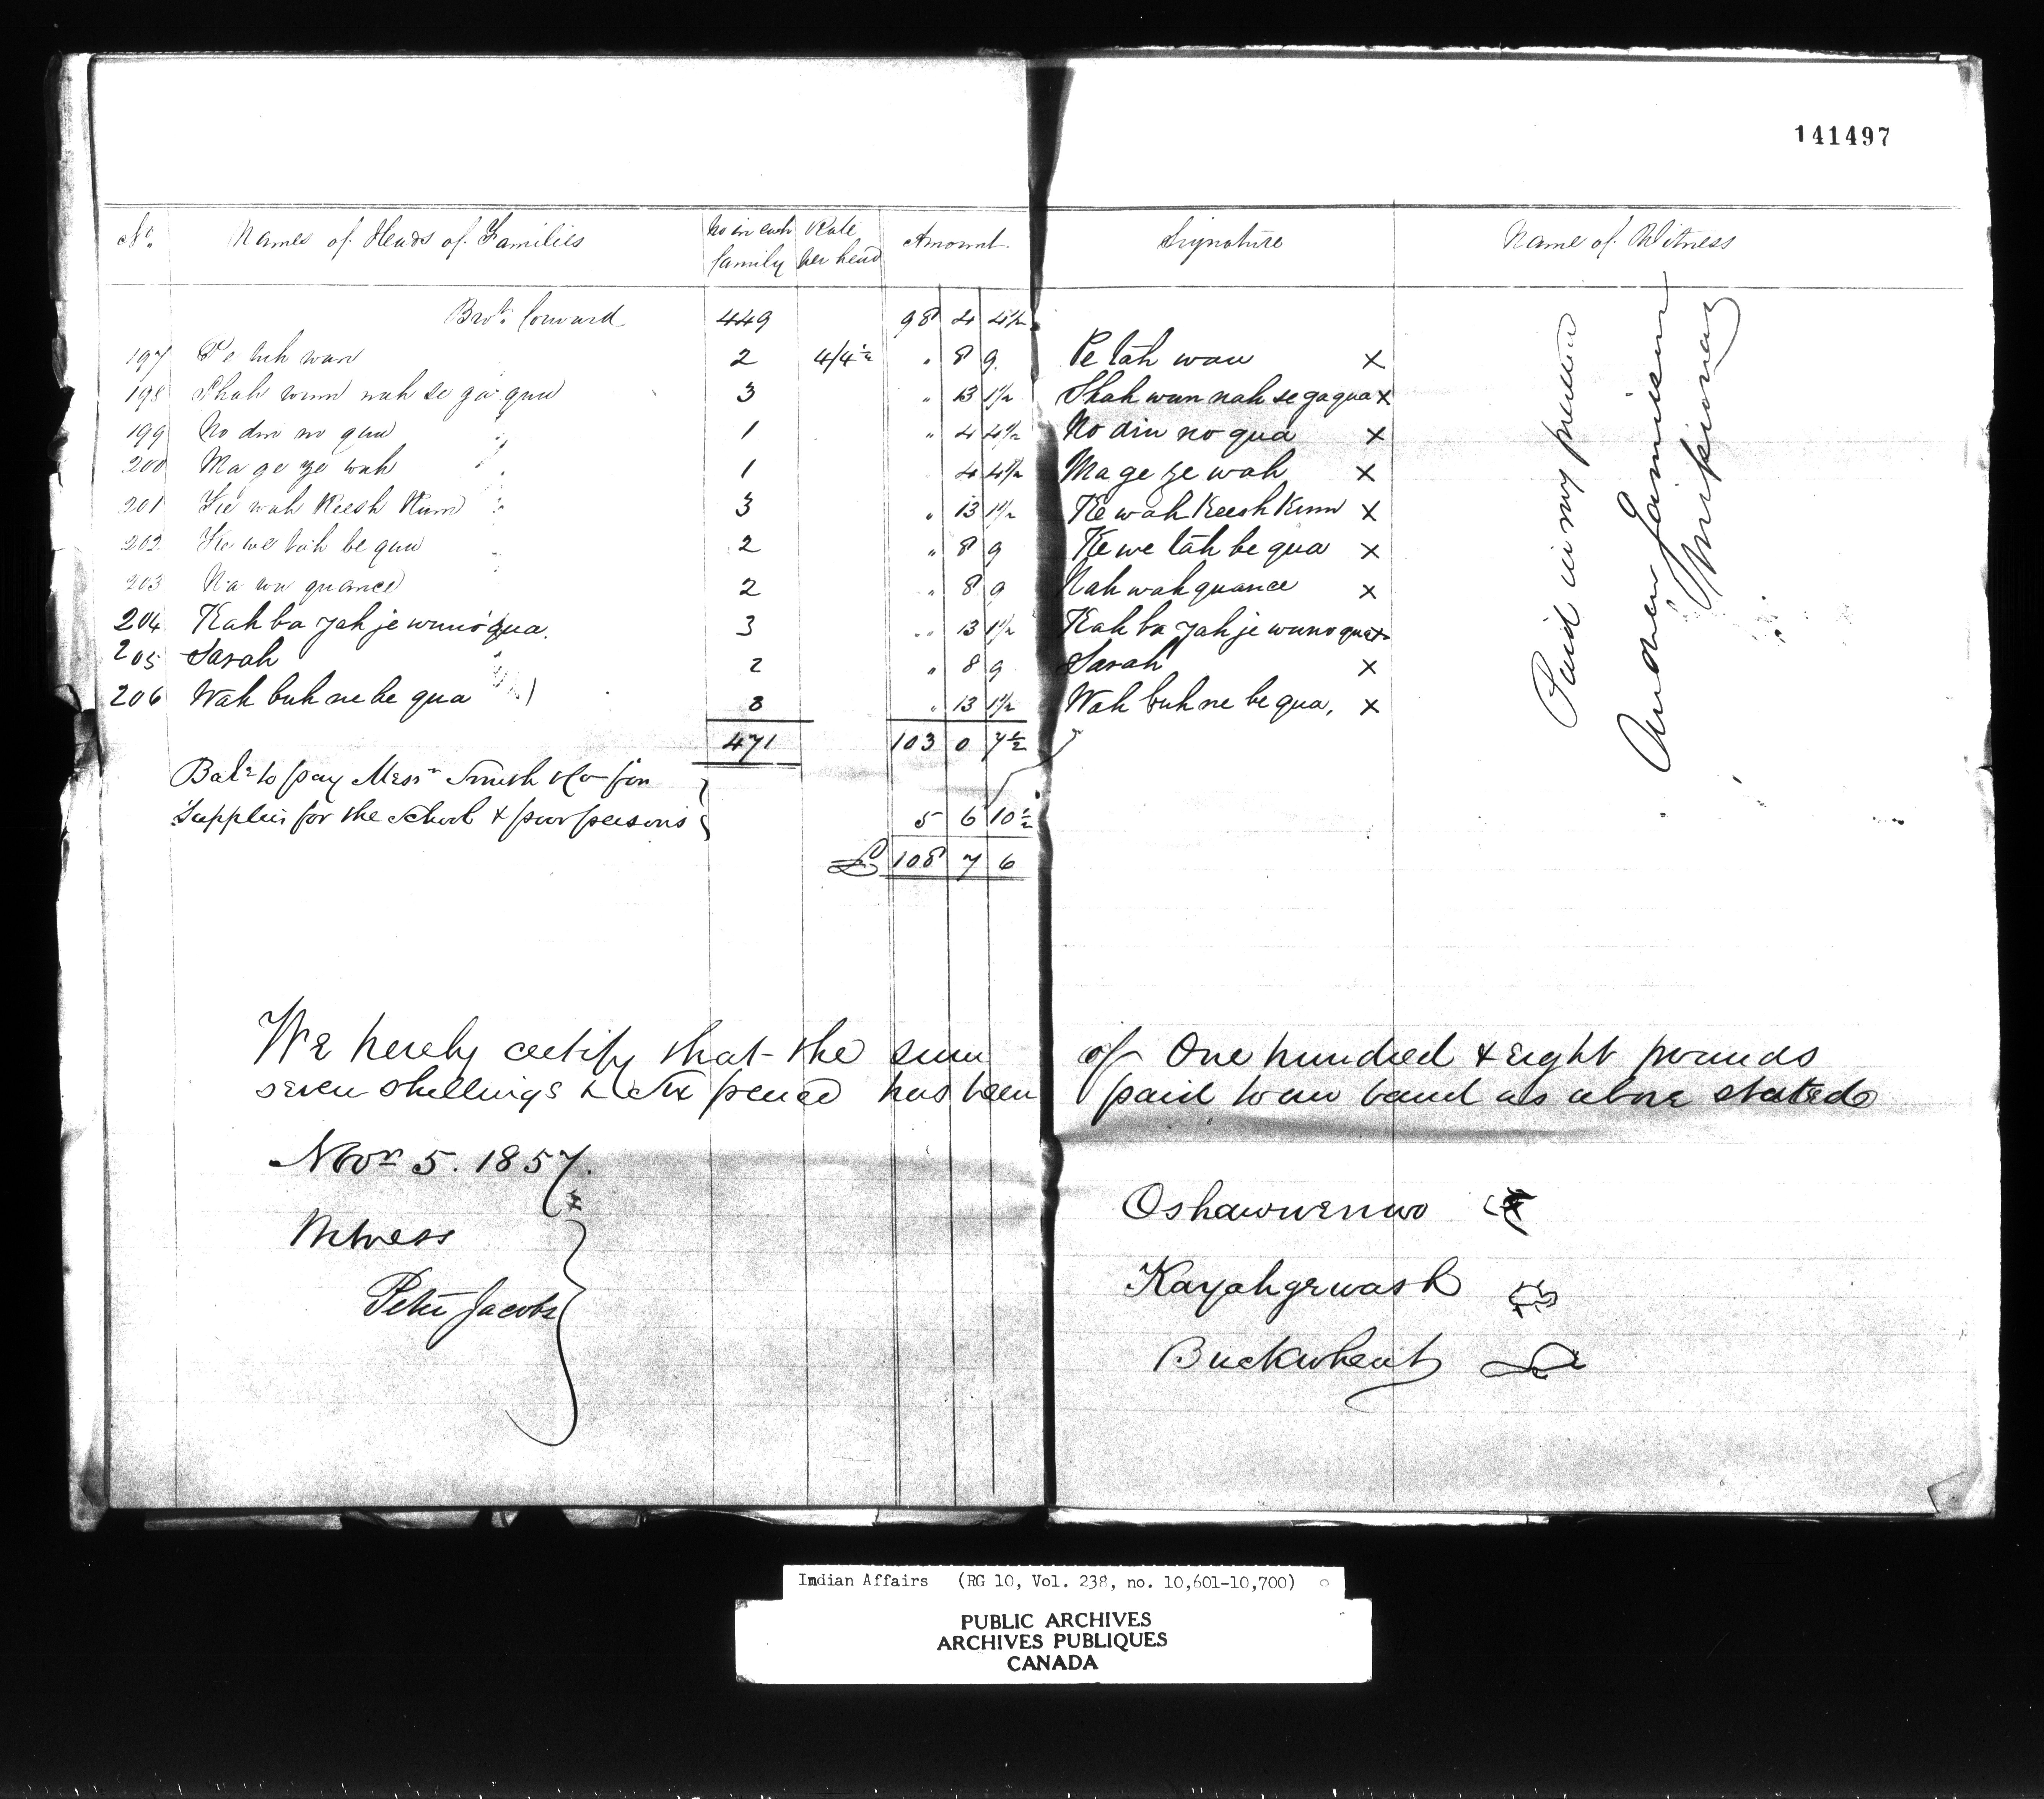 141497
No. Names of Heads of Families No in each family Rate per head Amount Signature Name of Witness
Brot. forward 449 98 4 4½
197 Pe tah wau 2 4/4½ " 8 9 Pe tah wau X
198 Shah wun nah se ga qua 3 " 13 1½ Shah wun nah se ga qua X
199 No din no qua 1 " 4 4½ No din no qua X
200 Ma ge ze wah 1 4 4½ Ma ge ze wah X
201 Ke wah Keesh Kum 3 " 13 1½ Ke wah Keesh Kum X
202 Ke we tah be qua 2 " 8 9 Ke we tah be qua X
203 Na wa quance 2 " 8 9 Nah wah quance X
204 Kah ba yah je wuno qua. 3 " 13 1½ Kah ba yah je wuno qua X
205 Sarah 2 " 8 9 Sarah X
206 Wah buh ne be qua 3 " 13 1½ Wah buh ne be qua, X
471 103 0 7½
Bale. to pay Messrs Smith & Co for
Supplies for the School & poor persons 5 6 10½
£ 108 7 6
Paid in my presence
Andrew Jamieson
Missionary
We hereby certify that the sum of One hundred & eight pounds
seven shillings & six pence has been paid to our band as above stated
Novr 5. 1857.
Witness
Peter Jacobs
Oshawwenuo
Kayahgewash
Buckwheat
Indian Affairs (RG 10, Vol. 238, no. 10,601-10,700)
PUBLIC ARCHIVES
ARCHIVES PUBLIQUES
CANADA